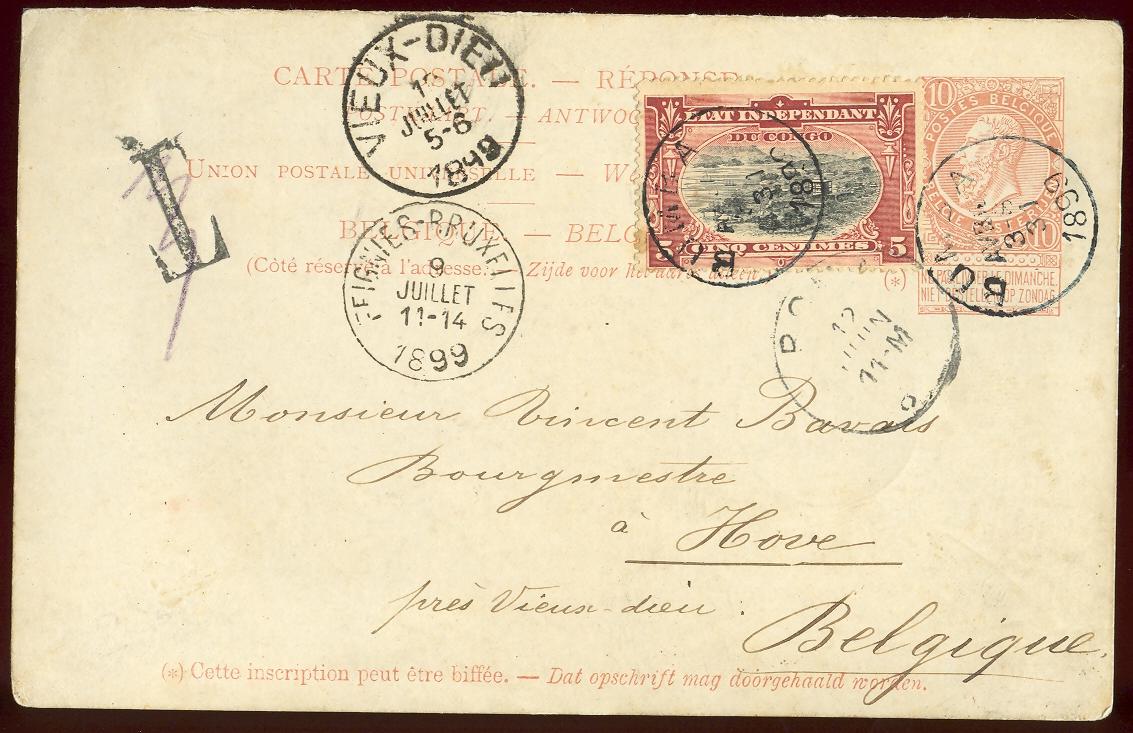 CARTE POSTALE. — RÉPONSE
POSTKAART. — ANTWOO
UNION POSTALE UNIVERSELLE — W
BELGIQUE — BELG
(Côté réservé à l'adresse. — Zijde voor het adres
(*)
VIEUX-DIEU
JUILLET
5-6
1899
FEIGNIES-BRUXELLES
9
JUILLET
11-14
1899
T
ETAT INDÉPENDANT
DU CONGO
5 CINQ CENTIMES 5
10
POSTES BELGIQUE
BELGIE POSTERIJEN
10
NE PAS LIVRER LE DIMANCHE.
NIET BESTELLEN OP ZONDAG
BUMBA
31
18
BUMBA
31
1899
12
JUIN
11-M
Monsieur Vincent Bavais
Bourgmestre
à Hove
près Vieux-dieu.
Belgique.
(*) Cette inscription peut être biffée. — Dat opschrift mag doorgehaald worden.